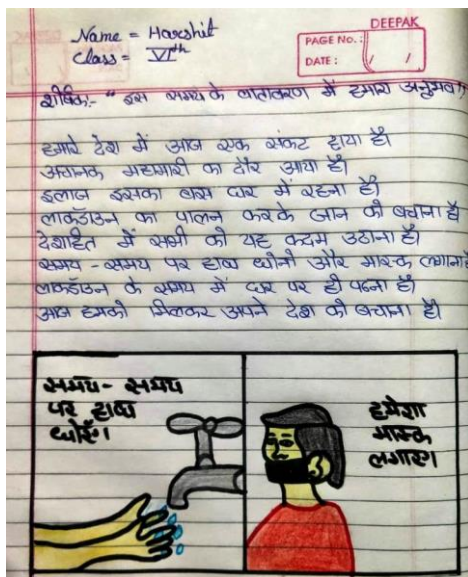 DEEPAK
Name = Harshit
Class = VIth
PAGE No. :
DATE : / /
शीर्षक:- " इस समय के वातावरण में हमारा अनुभव"
हमारे देश में आज एक संकट छाया है।
अचानक महामारी का दौर आया है।
इलाज इसका बस घर में रहना है।
लाकडॉउन का पालन करके जान को बचाना है
देशहित में सभी को यह कदम उठाना है।
समय - समय पर हाथ धोना और मास्क लगाना है
लाकडॉउन के समय में घर पर ही पढना है।
आज हमको मिलकर अपने देश को बचाना है।
समय - समय
पर हाथ
धोएँ।
हमेशा
मास्क
लगाए।